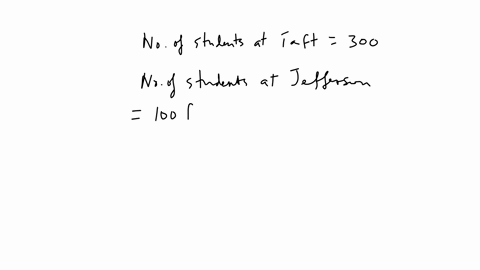 No. of students at Taft = 300
No. of students at Jefferson
= 100